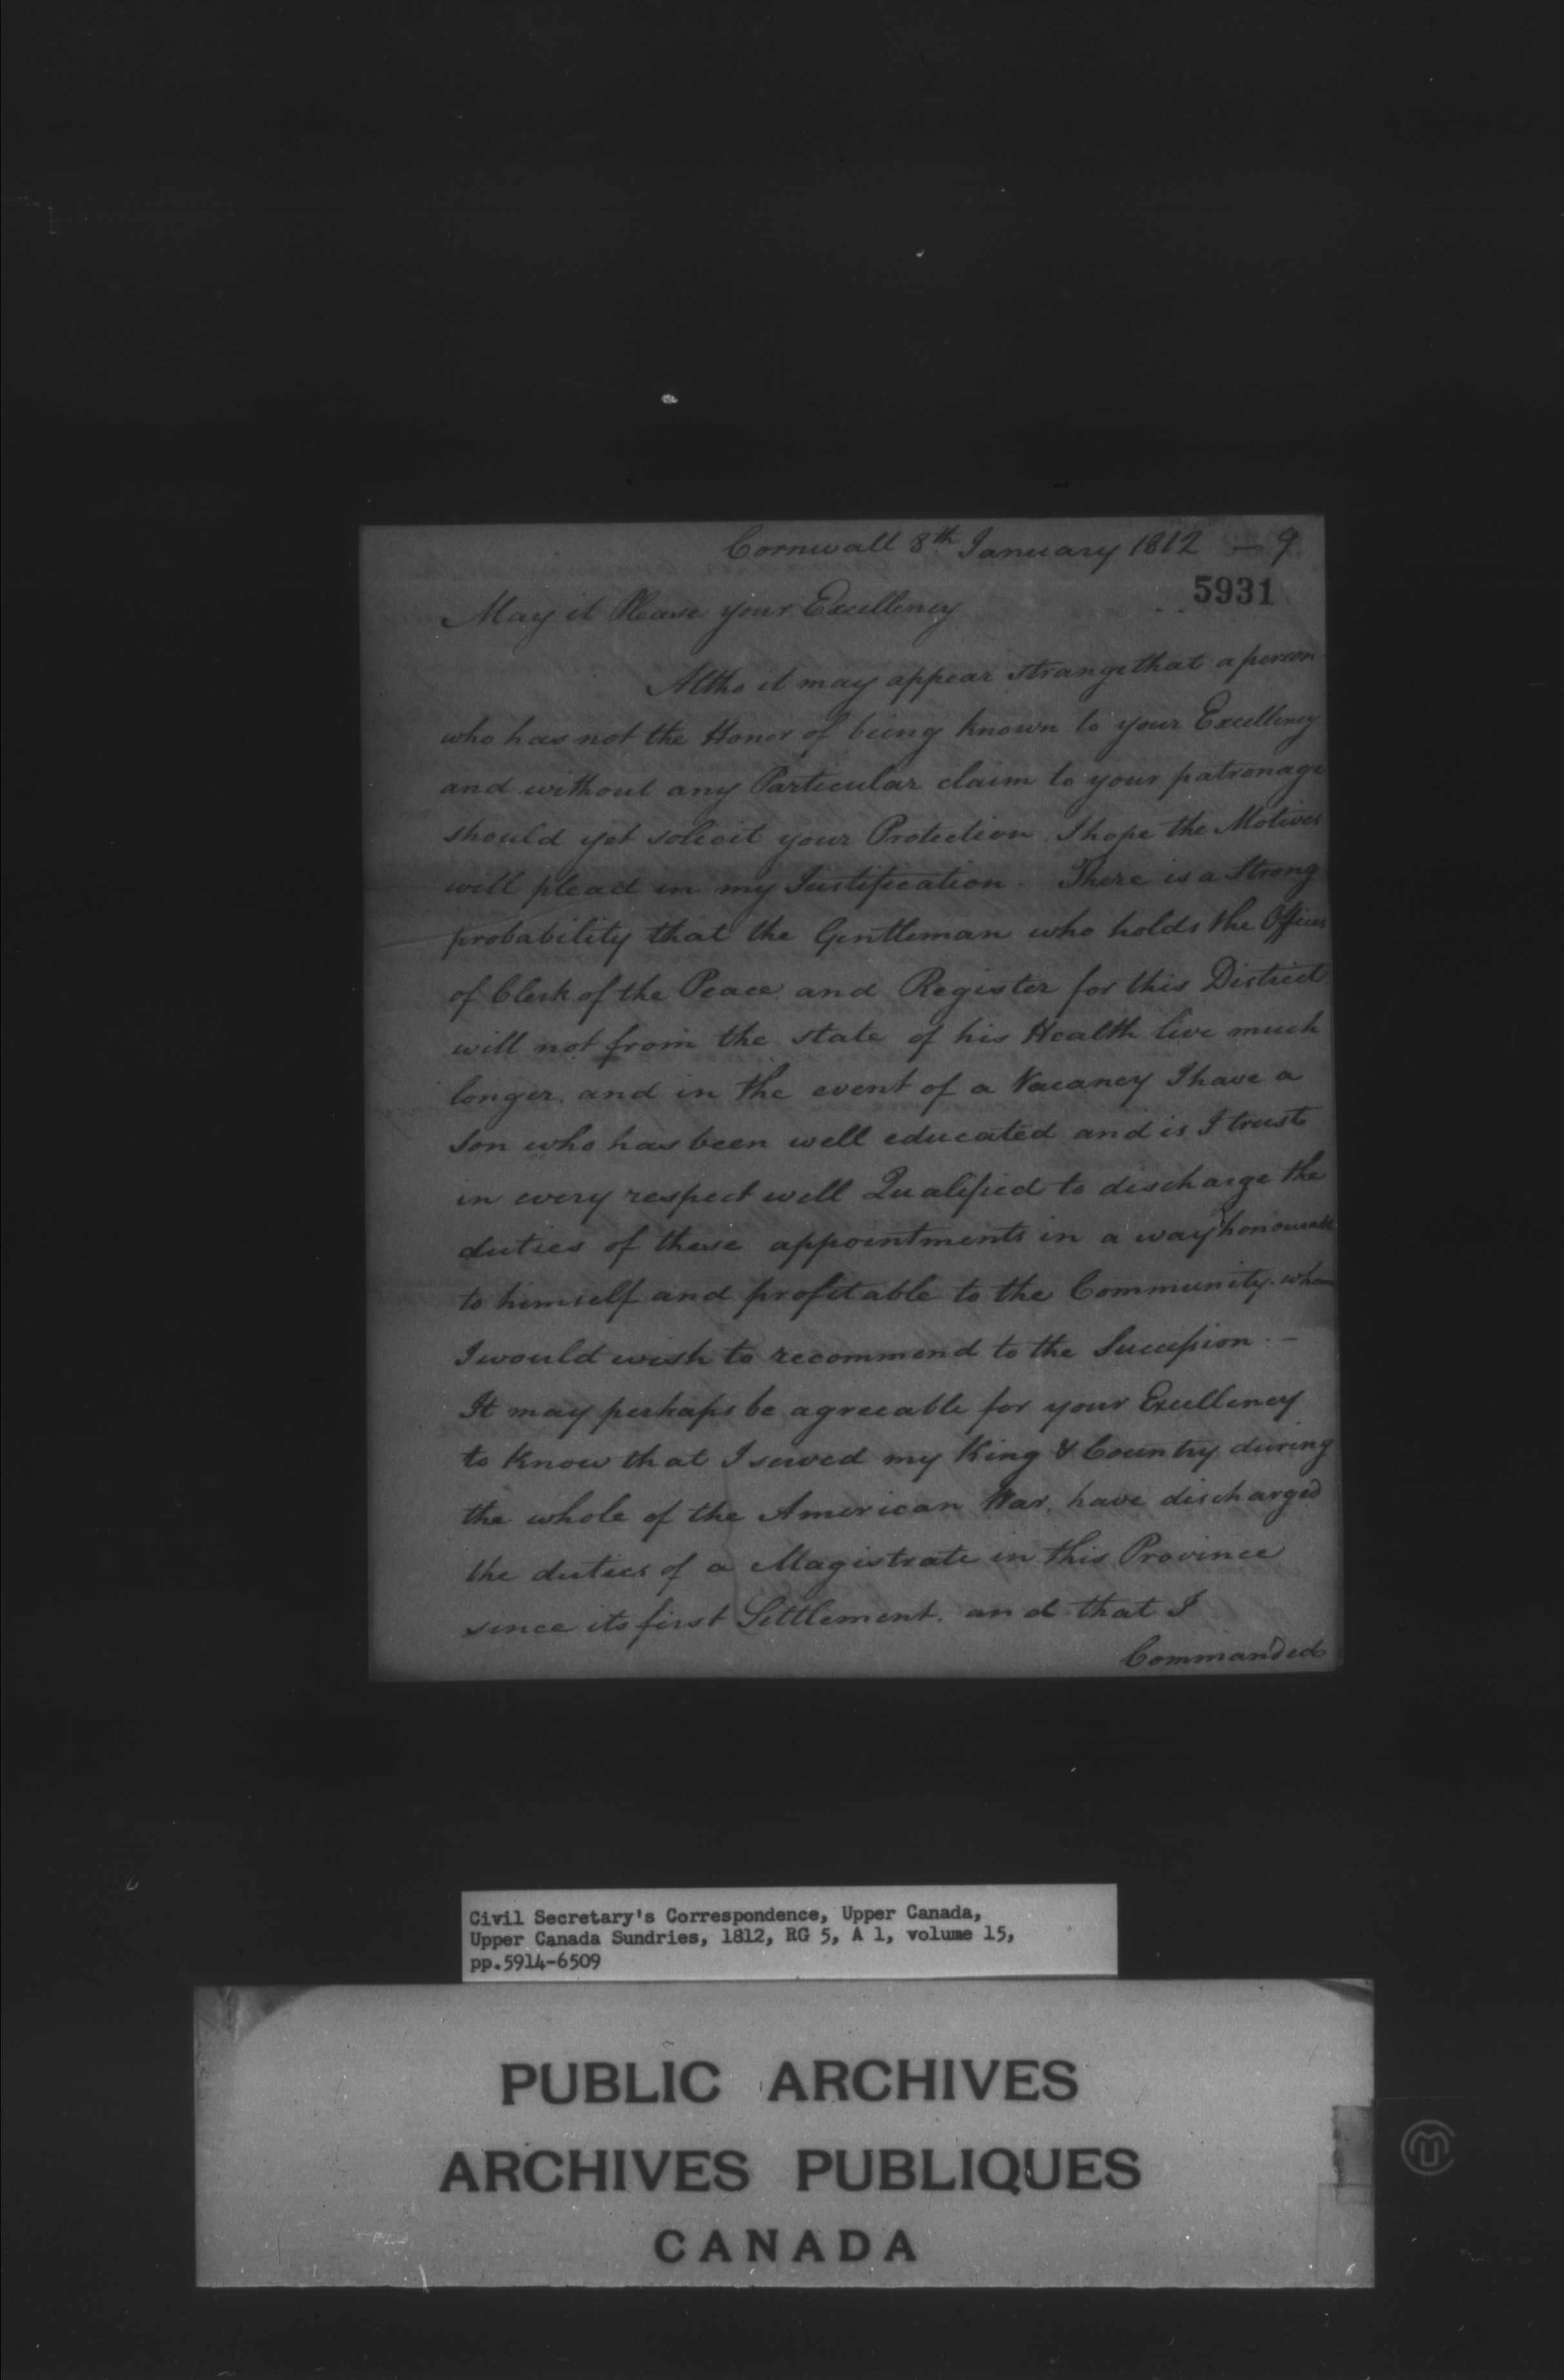 Cornwall 8th January 1812 — 9
5931
May it Please your Excellency
Altho it may appear strange that a person
who has not the Honor of being known to your Excellency
and without any Particular claim to your patronage
should yet solicit your Protection. I hope the Motives
will plead in my Justification. There is a Strong
probability that the Gentleman who holds the Offices
of Clerk of the Peace and Register for this District
will not from the state of his Health live much
longer. and in the event of a Vacancy I have a
Son who has been well educated and is I trust
in every respect well Qualified to discharge the
duties of these appointments in a way honourable
to himself and profitable to the Community. whom
I would wish to recommend to the Succession. —
It may perhaps be agreeable for your Excellency
to know that I served my King & Country during
the whole of the American War. have discharged
the duties of a Magistrate in this Province
since its first Settlement. and that I
Commanded
Civil Secretary's Correspondence, Upper Canada,
Upper Canada Sundries, 1812, RG 5, A 1, volume 15,
pp.5914-6509
PUBLIC ARCHIVES
ARCHIVES PUBLIQUES
CANADA